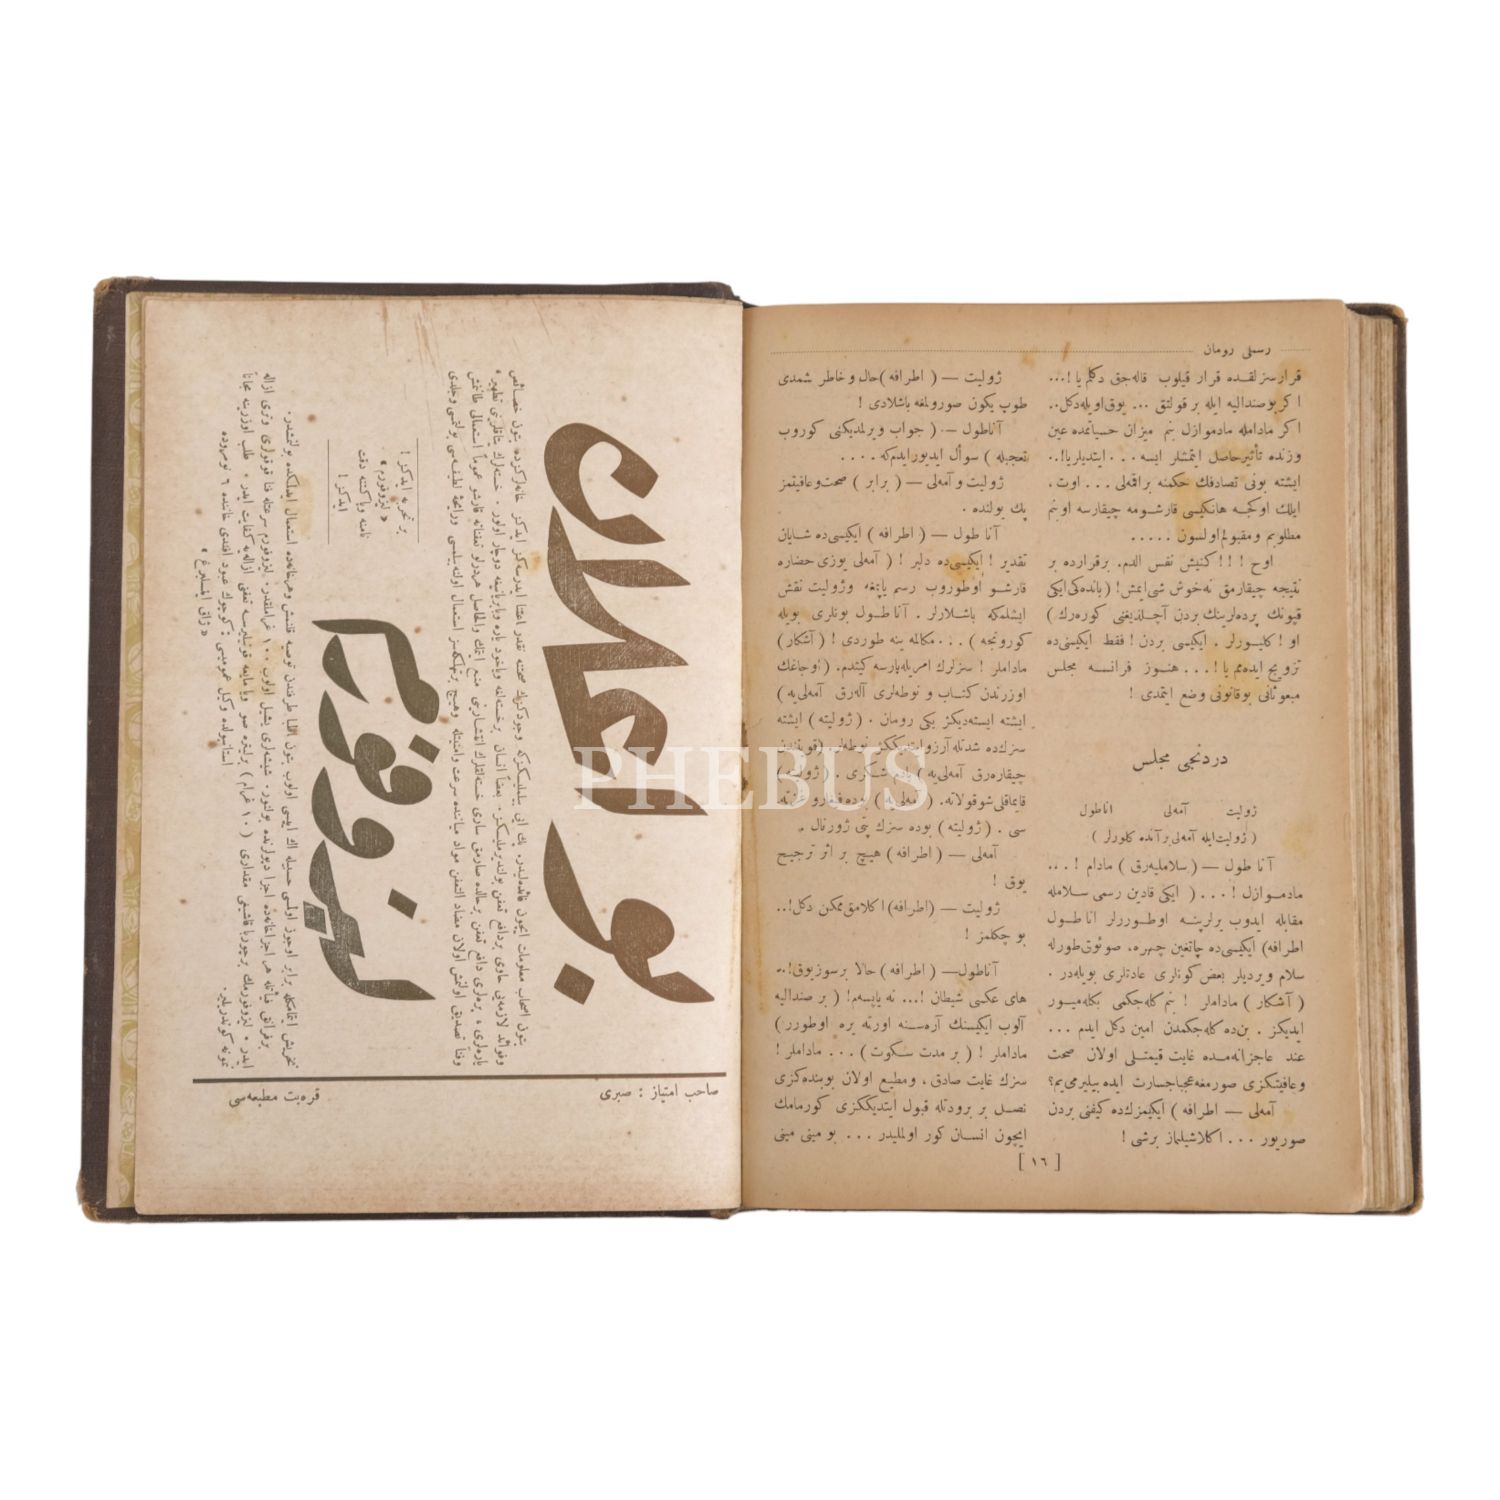 رسملی رومان
قرارسزلقده قرار قیلوب قاله‌جق دکلم یا !...
اکر بوصندالیه ایله بر قولتق ... یوق‌اویله‌دکل..
اکر مادامله مادموازل بنم میزان حسیاتمده عین
وزنده تأثیر حاصل ایتمشلر ایسه ... ایتدیلریا!..
ایشته بونی تصادفك حکمنه براقه‌لی ... اوت ،
ایلك اوکجه هانکیسی قارشومه چیقارسه اوبنم
مطلوبم ومقبولم‌اولسون .....
اوح !!! کنیش نفس الدم. برقرارده بر
نتیجه چیقارمق نه‌خوش شی‌ایمش! ( یانده‌کی‌ایکی
قپونك پرده‌لرینك بردن آچلدیغنی کوره‌رك )
او ! کلیورلر . ایکیسی بردن ! فقط ایکیسنی‌ده
تزویج ایده‌مم یا !... هنوز فرانسه مجلس
مبعوثانی بوقانونی وضع ایتمدی !
دردنجی مجلس
ژولیت آمه‌لی اناطول
( ژولیت‌ایله آمه‌لی برآنده کلورلر )
آنا طول — ( سلاملیه‌رق ) مادام !...
مادموازل !... ( ایکی قادین رسمی سلامله
مقابله ایدوب یرلرینه اوطوررلر اناطول
اطرافه ) ایکیسی‌ده چاتغین چهره، صوئوق‌طورله
سلام ویردیلر بعض کونلری عادتلری بویله‌در .
( آشکار ) ماداملر ! بنم کله‌جکمی بکله‌میور
ایدیکز . بن‌ده کله‌جکمدن امین دکل ایدم ...
عند عاجزانه‌مده غایت قیمتلی اولان صحت
وعافیتکزی صورمغه عجباجسارت ایده بیلیرمی‌یم؟
آمه‌لی — اطرافه ) ایکیمزك‌ده کیفنی بردن
صوریور ... اکلاشیلماز برشی !
ژولیت — ( اطرافه )حال و خاطر شمدی
طوپ یکون صورولمغه باشلادی !
آناطول — ( جواب ویرلمدیکنی کوروب
تعجبله ) سوآل ایدیور ایدم‌که ....
ژولیت و آمه‌لی — ( برابر ) صحت‌وعافیتمز
پك یولنده .
آنا طول — ( اطرافه ) ایکیسی‌ده شایان
تقدیر ! ایکیسی‌ده دلبر ! ( آمه‌لی یوزی حضاره
قارشو اوطوروب رسم یاپمغه وژولیت نقش
ایشلمکه باشلارلر . آناطول بونلری بویله
کورونجه ) ... مکالمه ینه طوردی ! ( آشکار )
ماداملر ! سزلرك امریله‌پارسه کیتدم. ( اوجاغك
اوزرندن کتاب و نوطه‌لری آله‌رق آمه‌لی‌یه )
ایشته ایسته‌دیکز یکی رومان . ( ژولیته ) ایشته
سزك‌ده شدتله آرزو ایتدیککز نوطه‌لر
چیقاره‌رق آمه‌لی‌یه ) بادم شکری . ( ژولیته )
قایماقلی شوقولاته. ( آمه‌لی‌یه )
سی . ( ژولیته ) بوده سزك پتی ژورنال .
آمه‌لی — ( اطرافه ) هیچ بر اثر ترجیح
یوق !
ژولیت — (اطرافه) اکلامق‌ممکن دکل!..
بو چکلمز !
آناطول — ( اطرافه ) حالا برسوزیوق!..
های عکسی شیطان !... نه یاپسه‌م! ( بر صندالیه
آلوب ایکیسنك آره‌سنه اورته یره اوطورر )
ماداملر ! ( بر مدت سکوت ) ... ماداملر !
سزك غایت صادق ، ومطیع اولان بوبنده‌کزی
نصل بر برودتله قبول ایتدیککزی کورمامك
ایچون انسان کور اولملیدر ... بو مینی مینی
[ ١٦ ]
بو اعلانی
بتون اصحاب معلومات ایچون فائده‌لیدر. پك ایی بیلملیسکزکه وجودکزك صحتنه نقدر اعتنا ایدرسه‌کز ایدکز خانه‌لرکزده بتون خصائص
وفوائد لازمه‌یی حاوی بردافع تعفن بولندیرملیسکز. بعضاً انسان برخسته‌لغه ویاخود یاره وبایریانه دوچار اولور . خسته‌لرك چاماشیرلرینی تطهیر ،
لیزوفورم
بر تجربه ایدیکز !
« لیزوفورم »
نامنه وپاکتنه دقت
ایدکز !
« ژاق ایلیبرغ »
صاحب امتیاز : صبری
قره‌بت مطبعه‌سی
PHEBUS